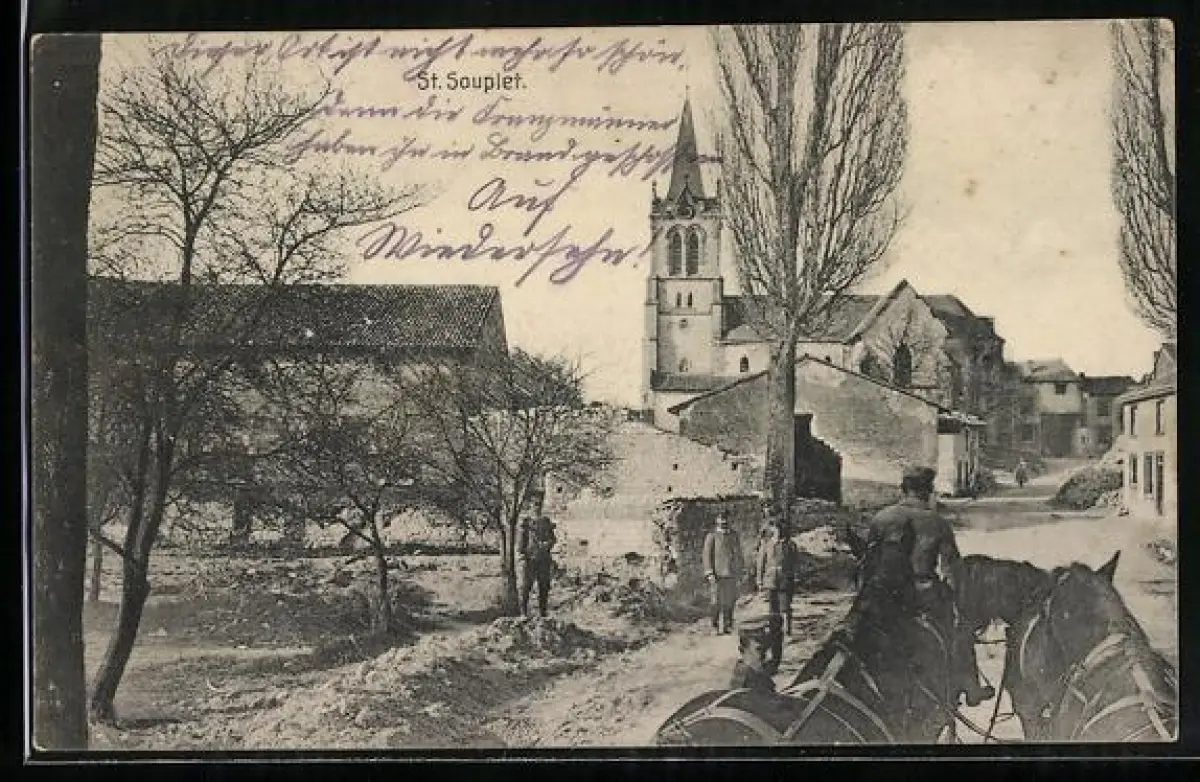 Dieser Ort ist nicht mehr so schön,
St. Souplet.
denn die Franzmänner
haben ihn in Brand geschossen
Auf
Wiedersehn!